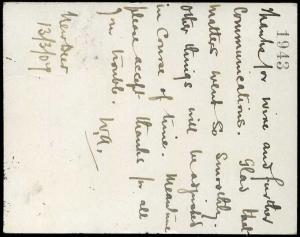 1943
Thanks for wire and further
Communications. Glad that
matters went so smoothly.
Other things will be adjusted
in course of time. Meantime
please accept thanks for all
you trouble. W.A.
New Deer
13/3/09